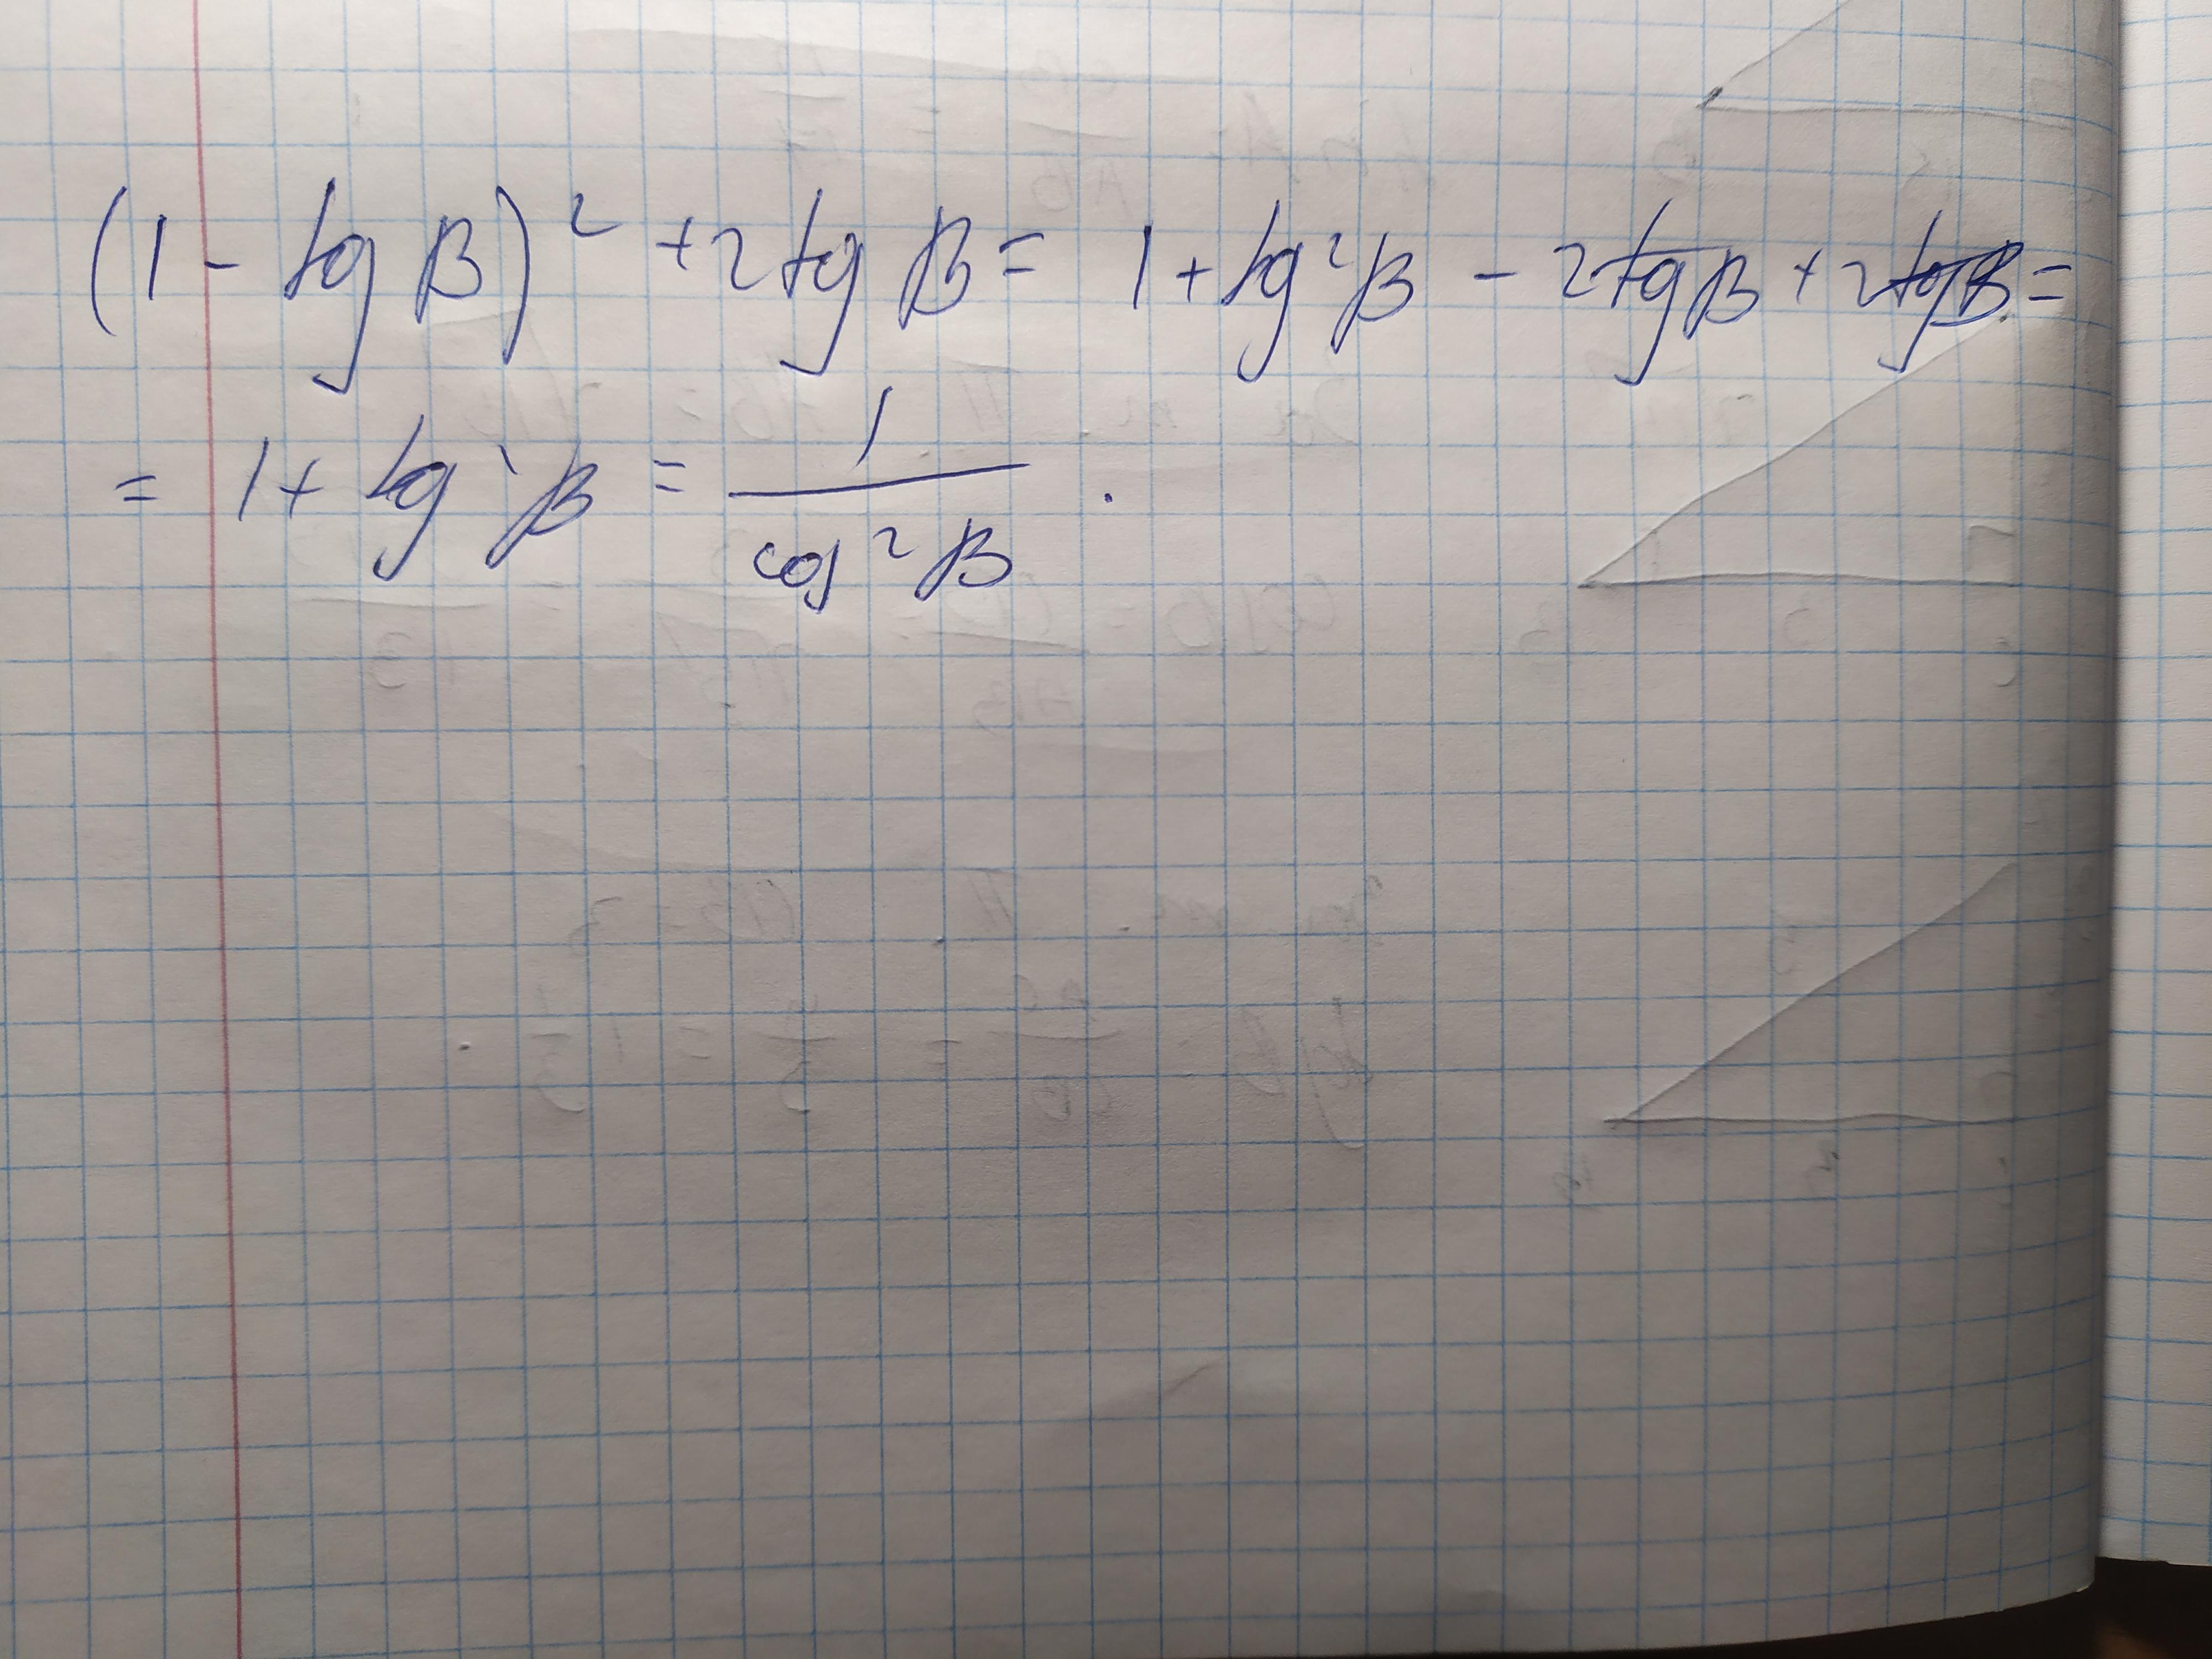 (1 - tg β)² + 2 tg β = 1 + tg²β - 2tgβ + 2tgβ =
= 1 + tg²β = 1/cos²β .